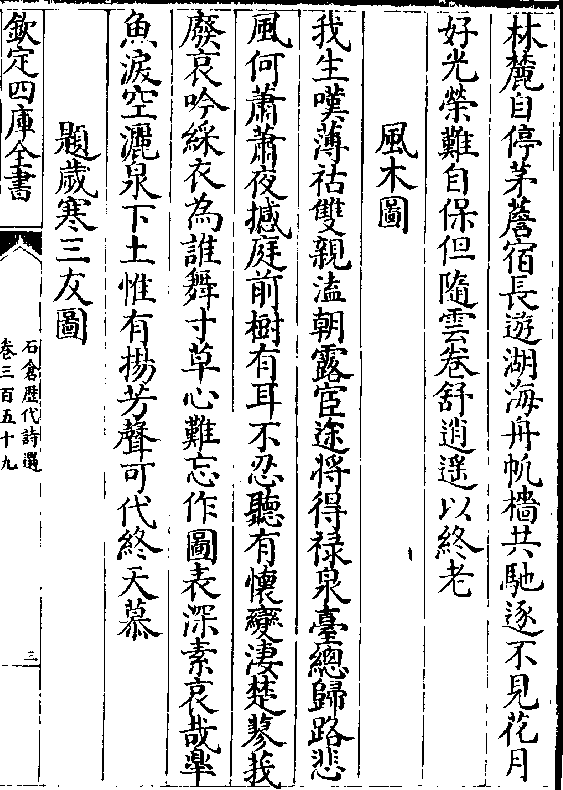 林麓自停茅蓭宿長遊湖海舟帆檣共馳逐不見花月
好光榮難自保但隨雲卷舒逍遥以終老
風木圖
我生嘆薄祜雙親溘朝露宦途將得禄泉臺總歸路悲
風何蕭蕭夜撼庭前樹有耳不忍聽有懷變淒楚蓼莪
廢哀吟綵衣為誰舞寸草心難忘作圖表深素哀哉臯
魚淚空灑泉下土惟有揚芳聲可代終天慕
題歲寒三友圖
欽定四庫全書
石倉歴代詩選
卷三百五十九
三